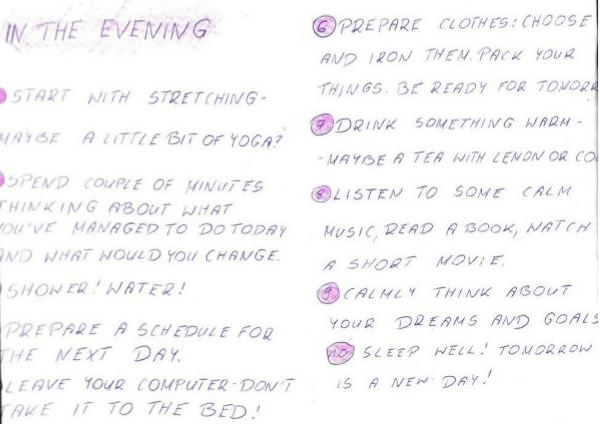 IN THE EVENING
START WITH STRETCHING-
MAYBE A LITTLE BIT OF YOGA?
SPEND COUPLE OF MINUTES
THINKING ABOUT WHAT
YOU'VE MANAGED TO DO TODAY
AND WHAT WOULD YOU CHANGE.
SHOWER! WATER!
PREPARE A SCHEDULE FOR
THE NEXT DAY.
LEAVE YOUR COMPUTER-DON'T
TAKE IT TO THE BED!
6 PREPARE CLOTHES: CHOOSE
AND IRON THEM. PACK YOUR
THINGS. BE READY FOR TOMORR
7 DRINK SOMETHING WARM-
-MAYBE A TEA WITH LEMON OR CO
8 LISTEN TO SOME CALM
MUSIC, READ A BOOK, WATCH
A SHORT MOVIE.
9. CALMLY THINK ABOUT
YOUR DREAMS AND GOALS
10. SLEEP WELL! TOMORROW
IS A NEW DAY!